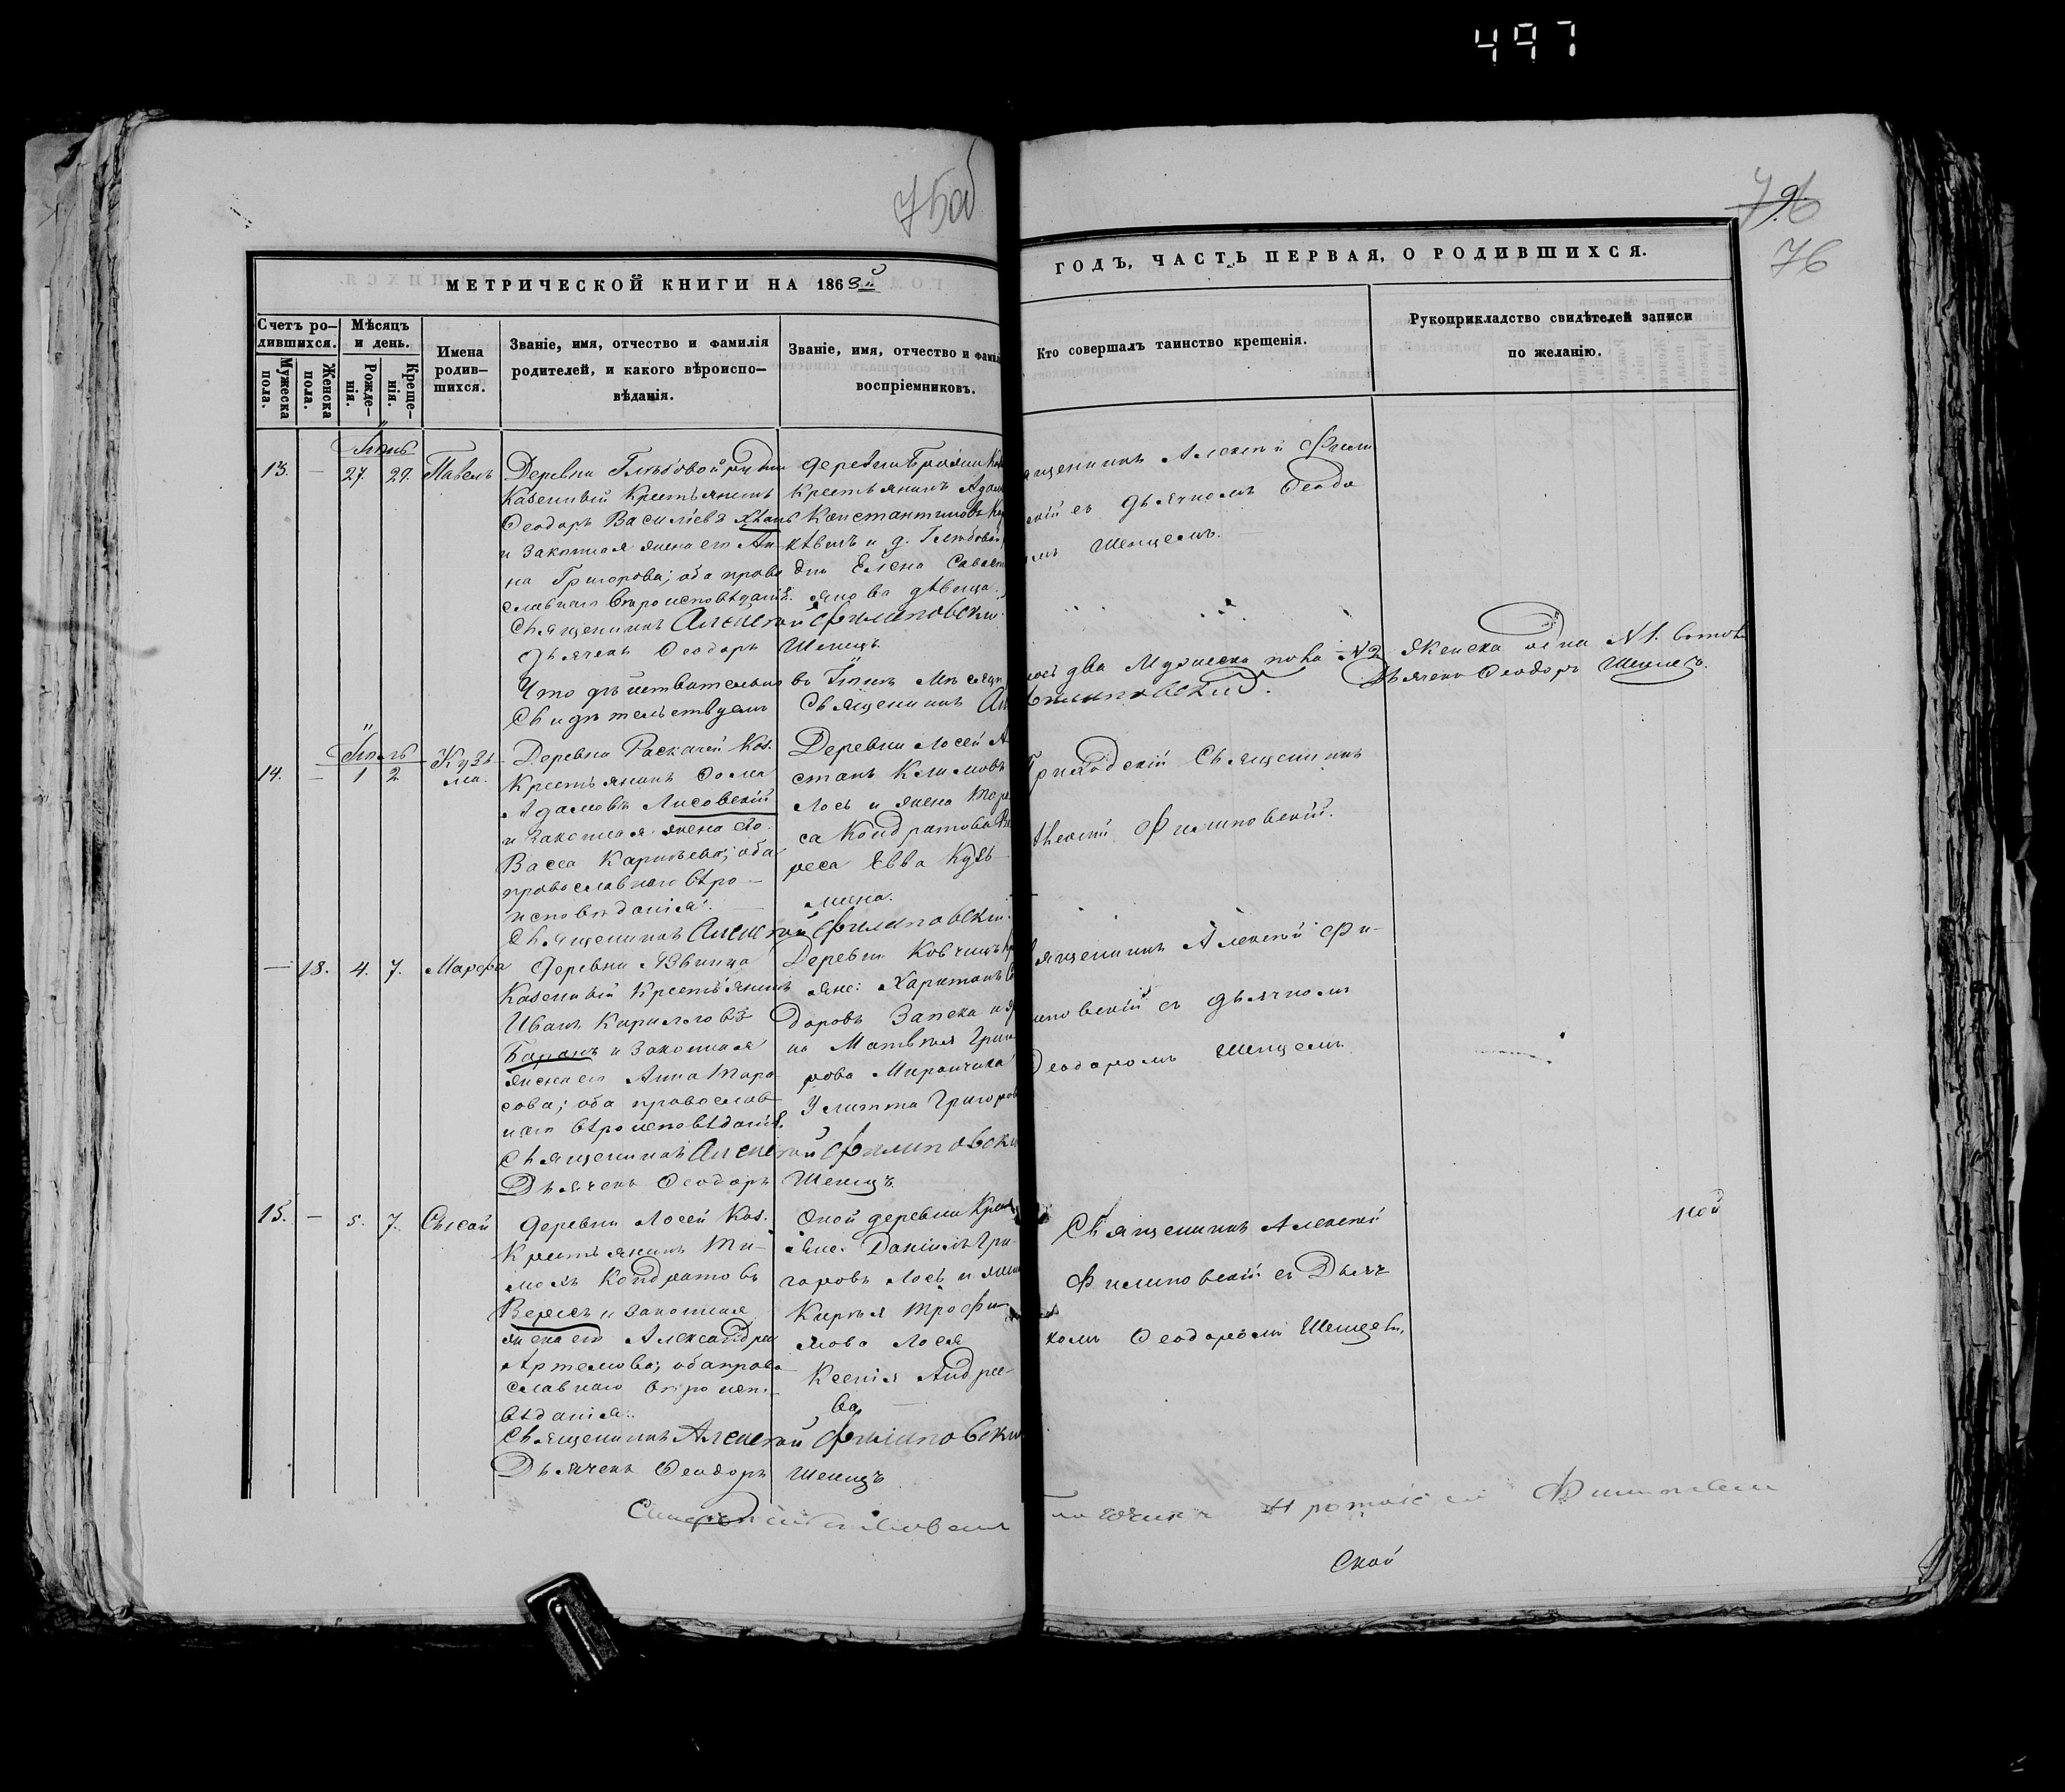 497
75об
76
76
МЕТРИЧЕСКОЙ КНИГИ НА 1863й
ГОДЪ, ЧАСТЬ ПЕРВАЯ, О РОДИВШИХСЯ.
Счетъ ро-
дившихся.
Мѣсяцъ
и день.
Мужеска
пола.
Женска
пола.
Рожде-
нія.
Креще-
нія.
Имена
родив-
шихся.
Званіе, имя, отчество и фамилія
родителей, и какого вѣроиспо-
вѣданія.
Званіе, имя, отчество и фамил
воспріемниковъ.
Кто совершалъ таинство крещенія.
Рукоприкладство свидѣтелей записи
по желанію.
Іюнь
13. — 27. 29. Павелъ
Деревни
Казенный Крестьянинъ
Ѳеодоръ Васильевъ
и законная жена его Ан-
на Григорова; оба право
славнаго вѣроисповѣданія.
Священникъ Алексій Филиповскій
Дьячекъ Ѳеодоръ Шенецъ.
деревни
Крестьянинъ Адам
Константиновъ
и д.
Елена
дѣвица.
ященникъ Алексій Фили
скій съ дьячкомъ Ѳеодо
омъ Шенцемъ.
Что дѣйствительно въ Іюнѣ Мѣсяцѣ
Свидѣтельствуемъ Священникъ Ал
два Мужеска пола №2 Женска одна №1. въ томъ
Филиповскій. Дьячекъ Ѳеодоръ Шенецъ.
Іюль
14. — 1 2 Кузь-
ма.
Деревни Раскачей Каз.
Крестьянинъ Ѳома
Адамовъ Лисовскій
и законная жена его
Васса Карпьева; оба
православнаго вѣро-
исповѣданія.
Священникъ Алексій Филиповскій
Деревни Лосей А
станъ Климовъ
Лось и жена
са Кондратова
Евва Кузь-
мина.
Приходскій Священникъ
Алексій Филиповскій.
— 18. 4. 7. Марѳа
Деревни Язвинца
Казенный Крестьянинъ
Иванъ Кириловъ
Баранъ и законная
жена его Анна Тара-
сова; оба православ
наго вѣроисповѣданія.
Священникъ Алексій Филиповскій
Дьячекъ Ѳеодоръ Шенецъ
Деревни Ковчицъ Кр
яне: Харитонъ
доровъ Запека и
на Матвѣя Григо
рова Мирончика
Улитта Григоров
ященникъ Алексій Фи-
иповскій съ дьячкомъ
Ѳеодоромъ Шенцемъ
15. — 5. 7. Сысой
деревни Лосей Каз.
Крестьянинъ Ти-
моѳ Кондратовъ
Вересъ и законная
жена его Александра
Артемова; оба право
славнаго вѣроиспо-
вѣданія.
Священникъ Алексій Филиповскій
Дьячекъ Ѳеодоръ Шенецъ
Оной деревни Крест
яне. Даніилъ Гри-
горовъ Лось и жена
Кирѣя Трофи-
мова Лося
Ксенія Андрее-
ва
Священникъ Алексій
Филиповскій съ Дьяч
комъ Ѳеодоромъ Шенцемъ.
ской